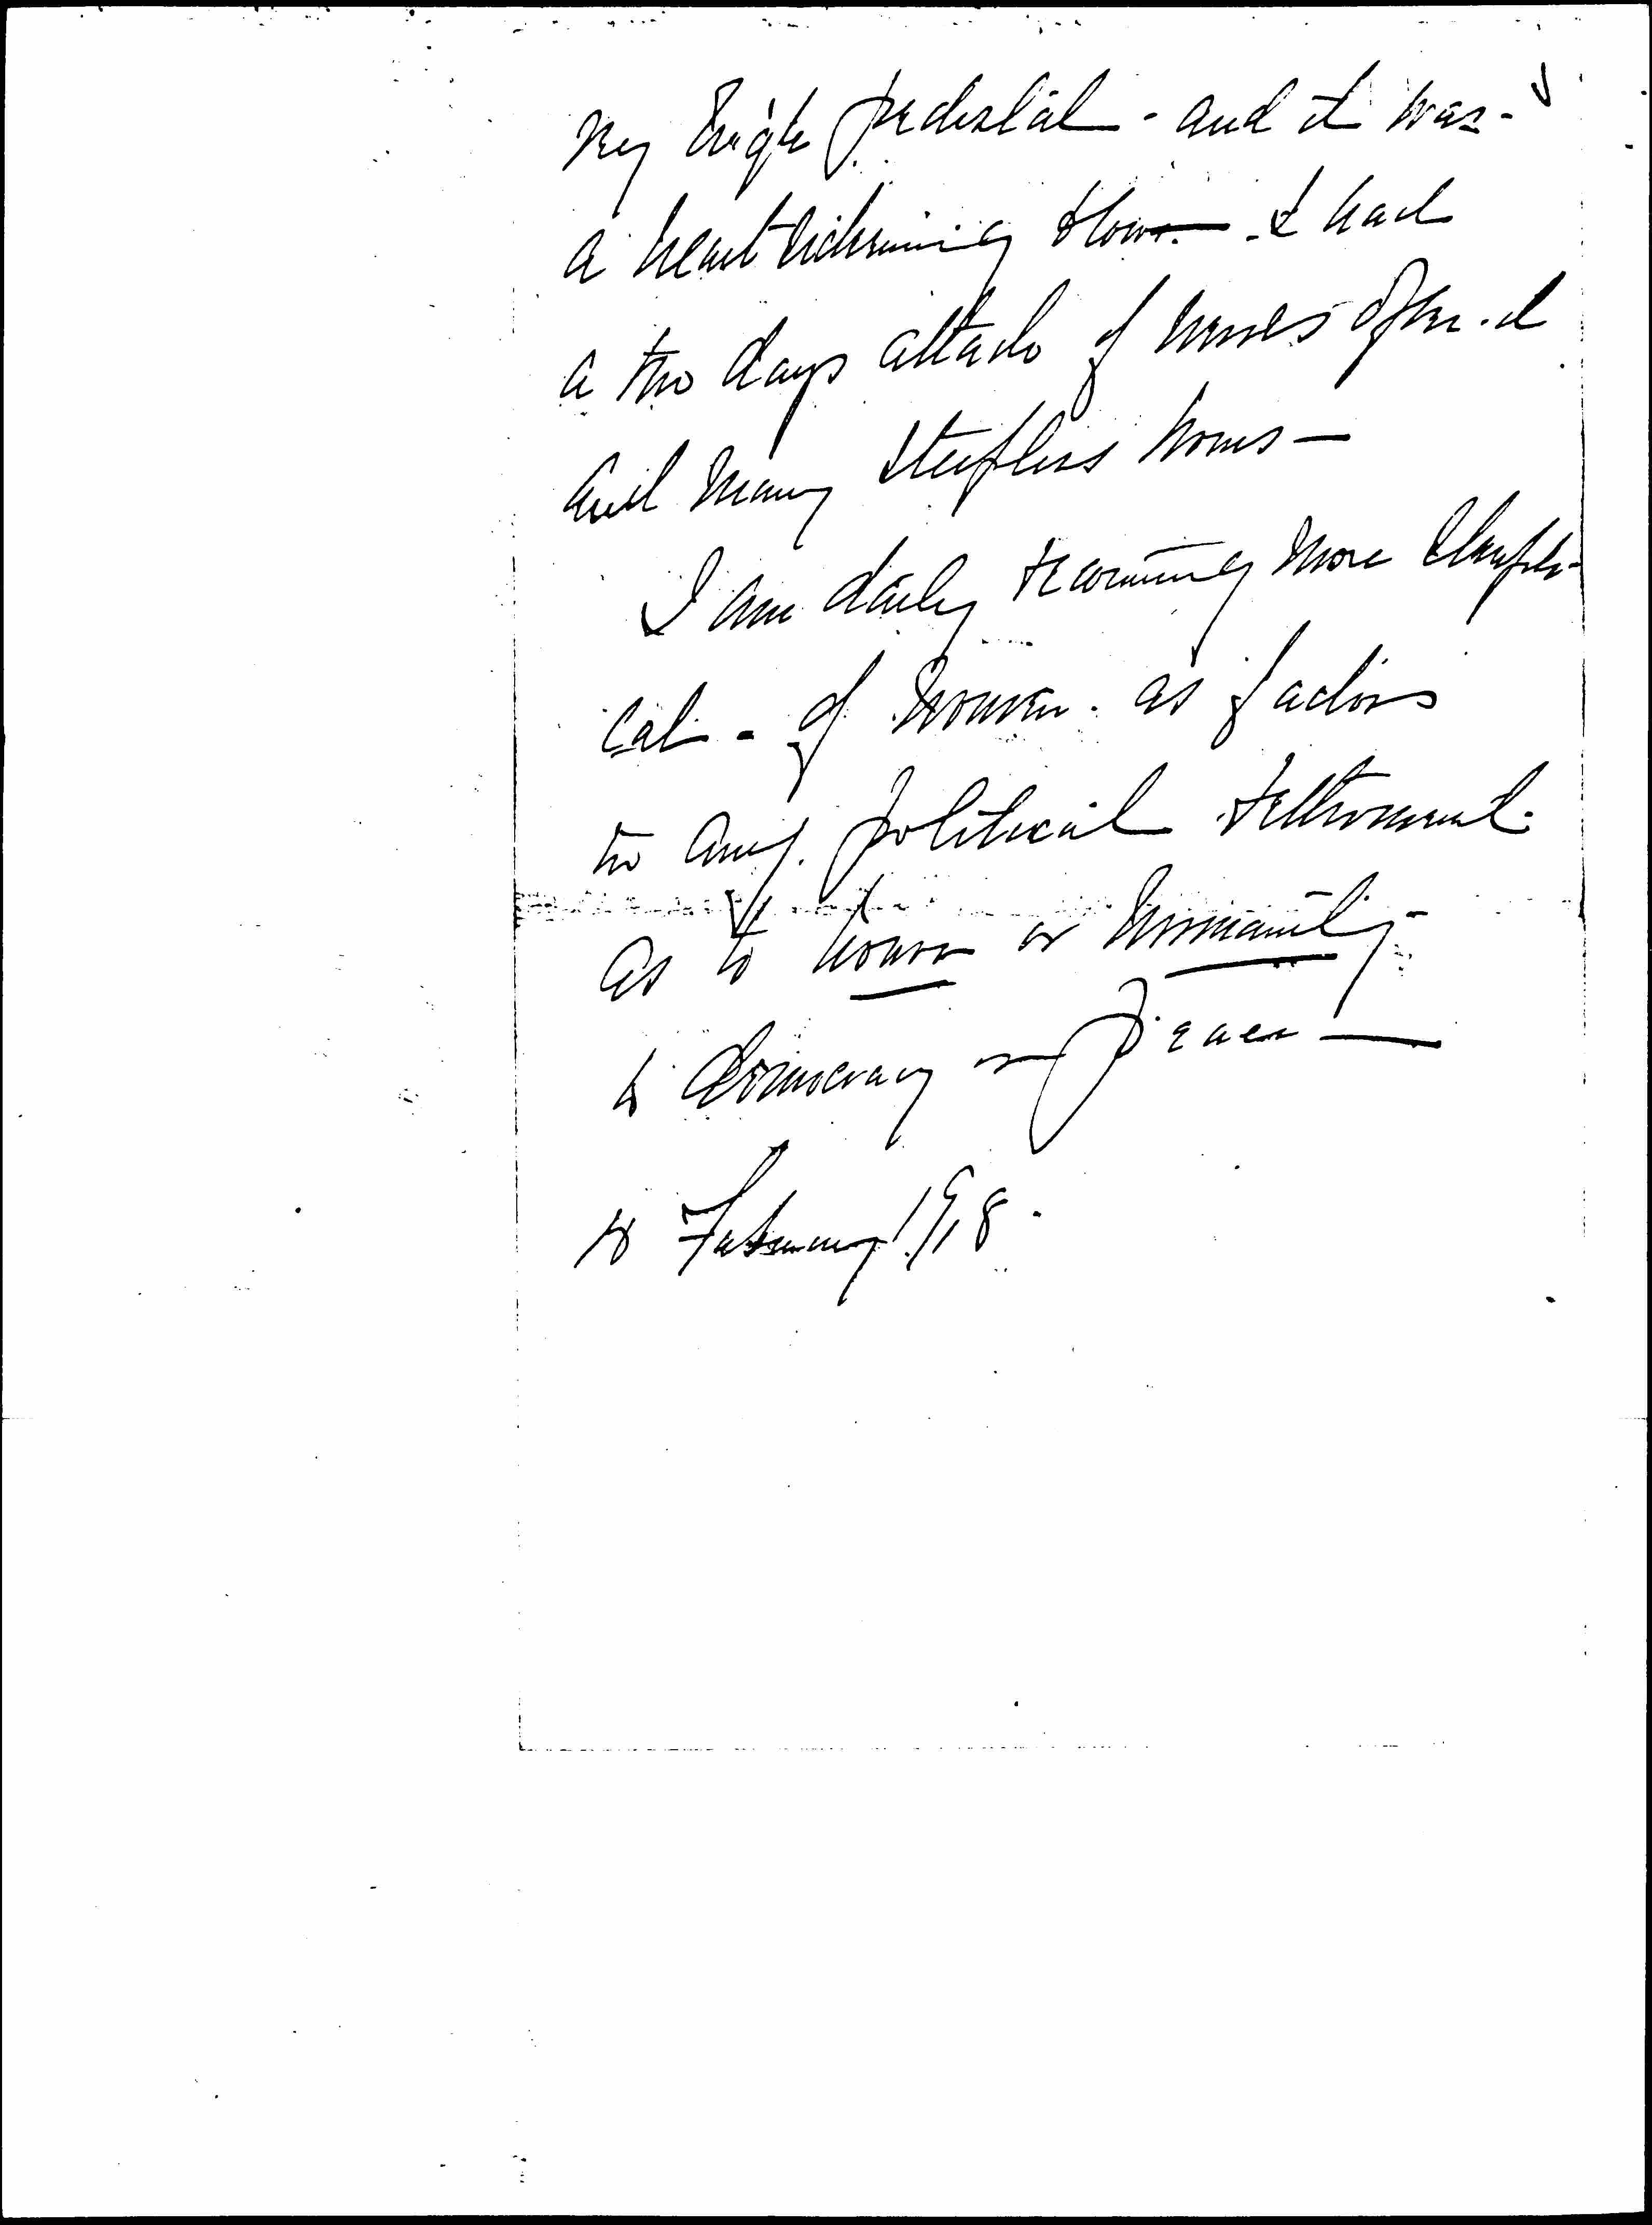 my high pedestal - and it was -
a heart sickening blow. - I had
a two days attack of nerves after it
and many sleepless hours -
I am daily becoming more skepti-
cal - of women - as factors
to any political settlement
as to honor or humanity -
to democracy or peace -
18 February 1918.